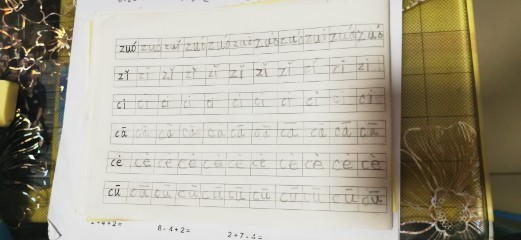 zuó zuó zuó zuó zuó zuó zuó zuó zuó zuó zuó
zǐ zǐ zǐ zǐ zǐ zǐ zǐ zǐ zǐ zǐ zǐ
cì cì cì cì cì cì cì cì cì cì cì
cā cā cā cā cā cā cā cā cā cā cā
cè cè cè cè cè cè cè cè cè cè cè
cū cū cū cū cū cū cū cū cū cū cū
8-4+2= 2+7-4=